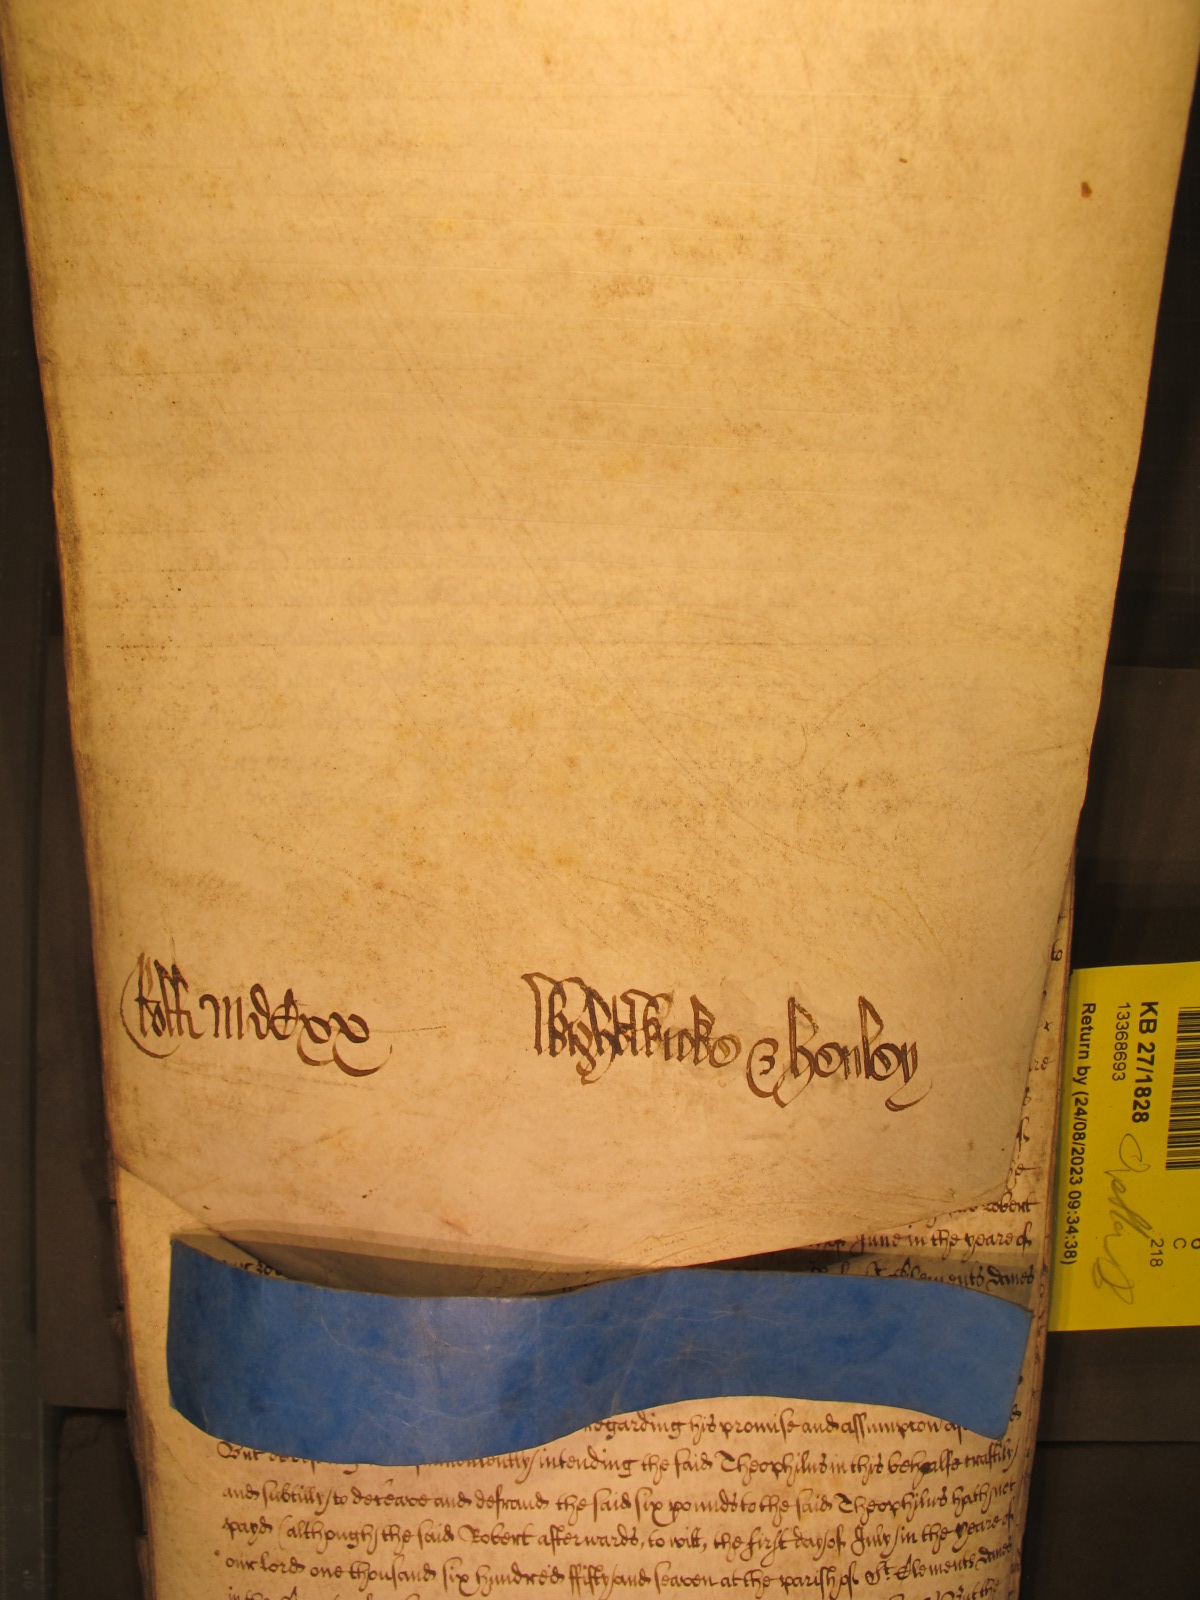 Rolli mdcxx Wightwicke & Henley
KB 27/1828
13368693
Return by (24/08/2023 09:34:38)
218
C
Robert
June in the yeare of
St Clements danes
regarding his promise and assumpcon
But intending the said Theophilus in this behalfe craftily
and subtilly to deceave and defraud the said six pounds to the said Theophilus hath not
payd (although the said Robert afterwards, to witt, the first day of July in the yeare of
our lord one thousand six hundred fifty and seaven at the parish of St Clements danes